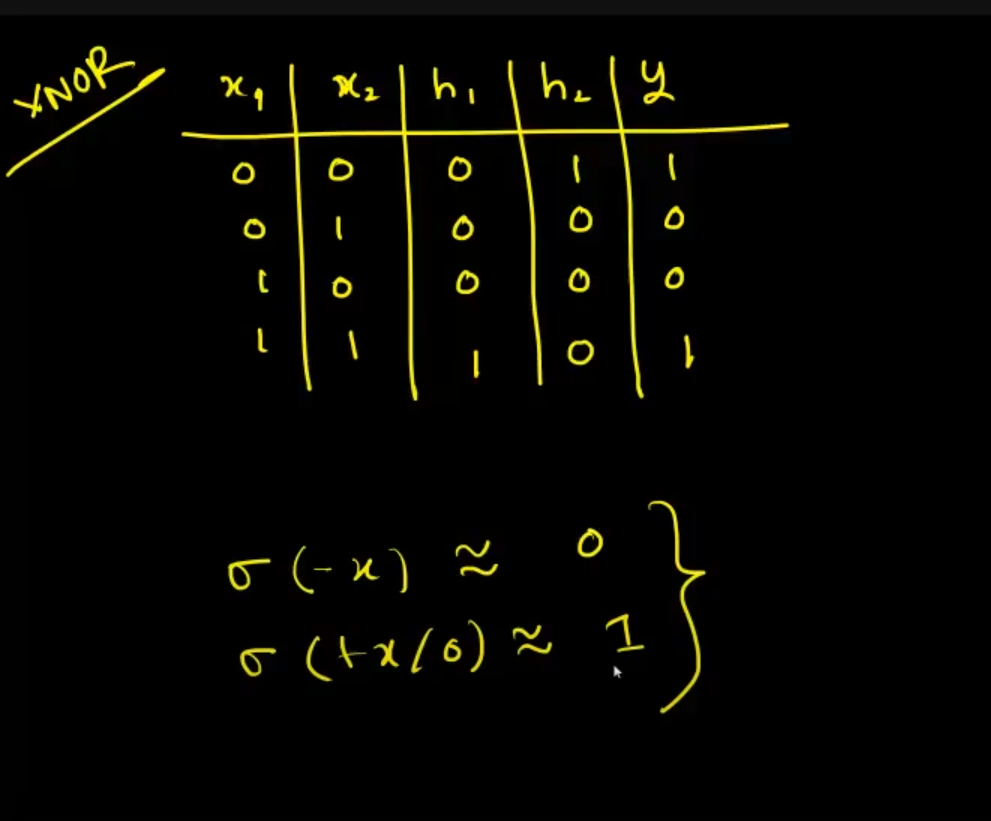 XNOR
x₁ | x₂ | h₁ | h₂ | y
0 | 0 | 0 | 1 | 1
0 | 1 | 0 | 0 | 0
1 | 0 | 0 | 0 | 0
1 | 1 | 1 | 0 | 1
σ (-x) ≈ 0
σ (+x/0) ≈ 1